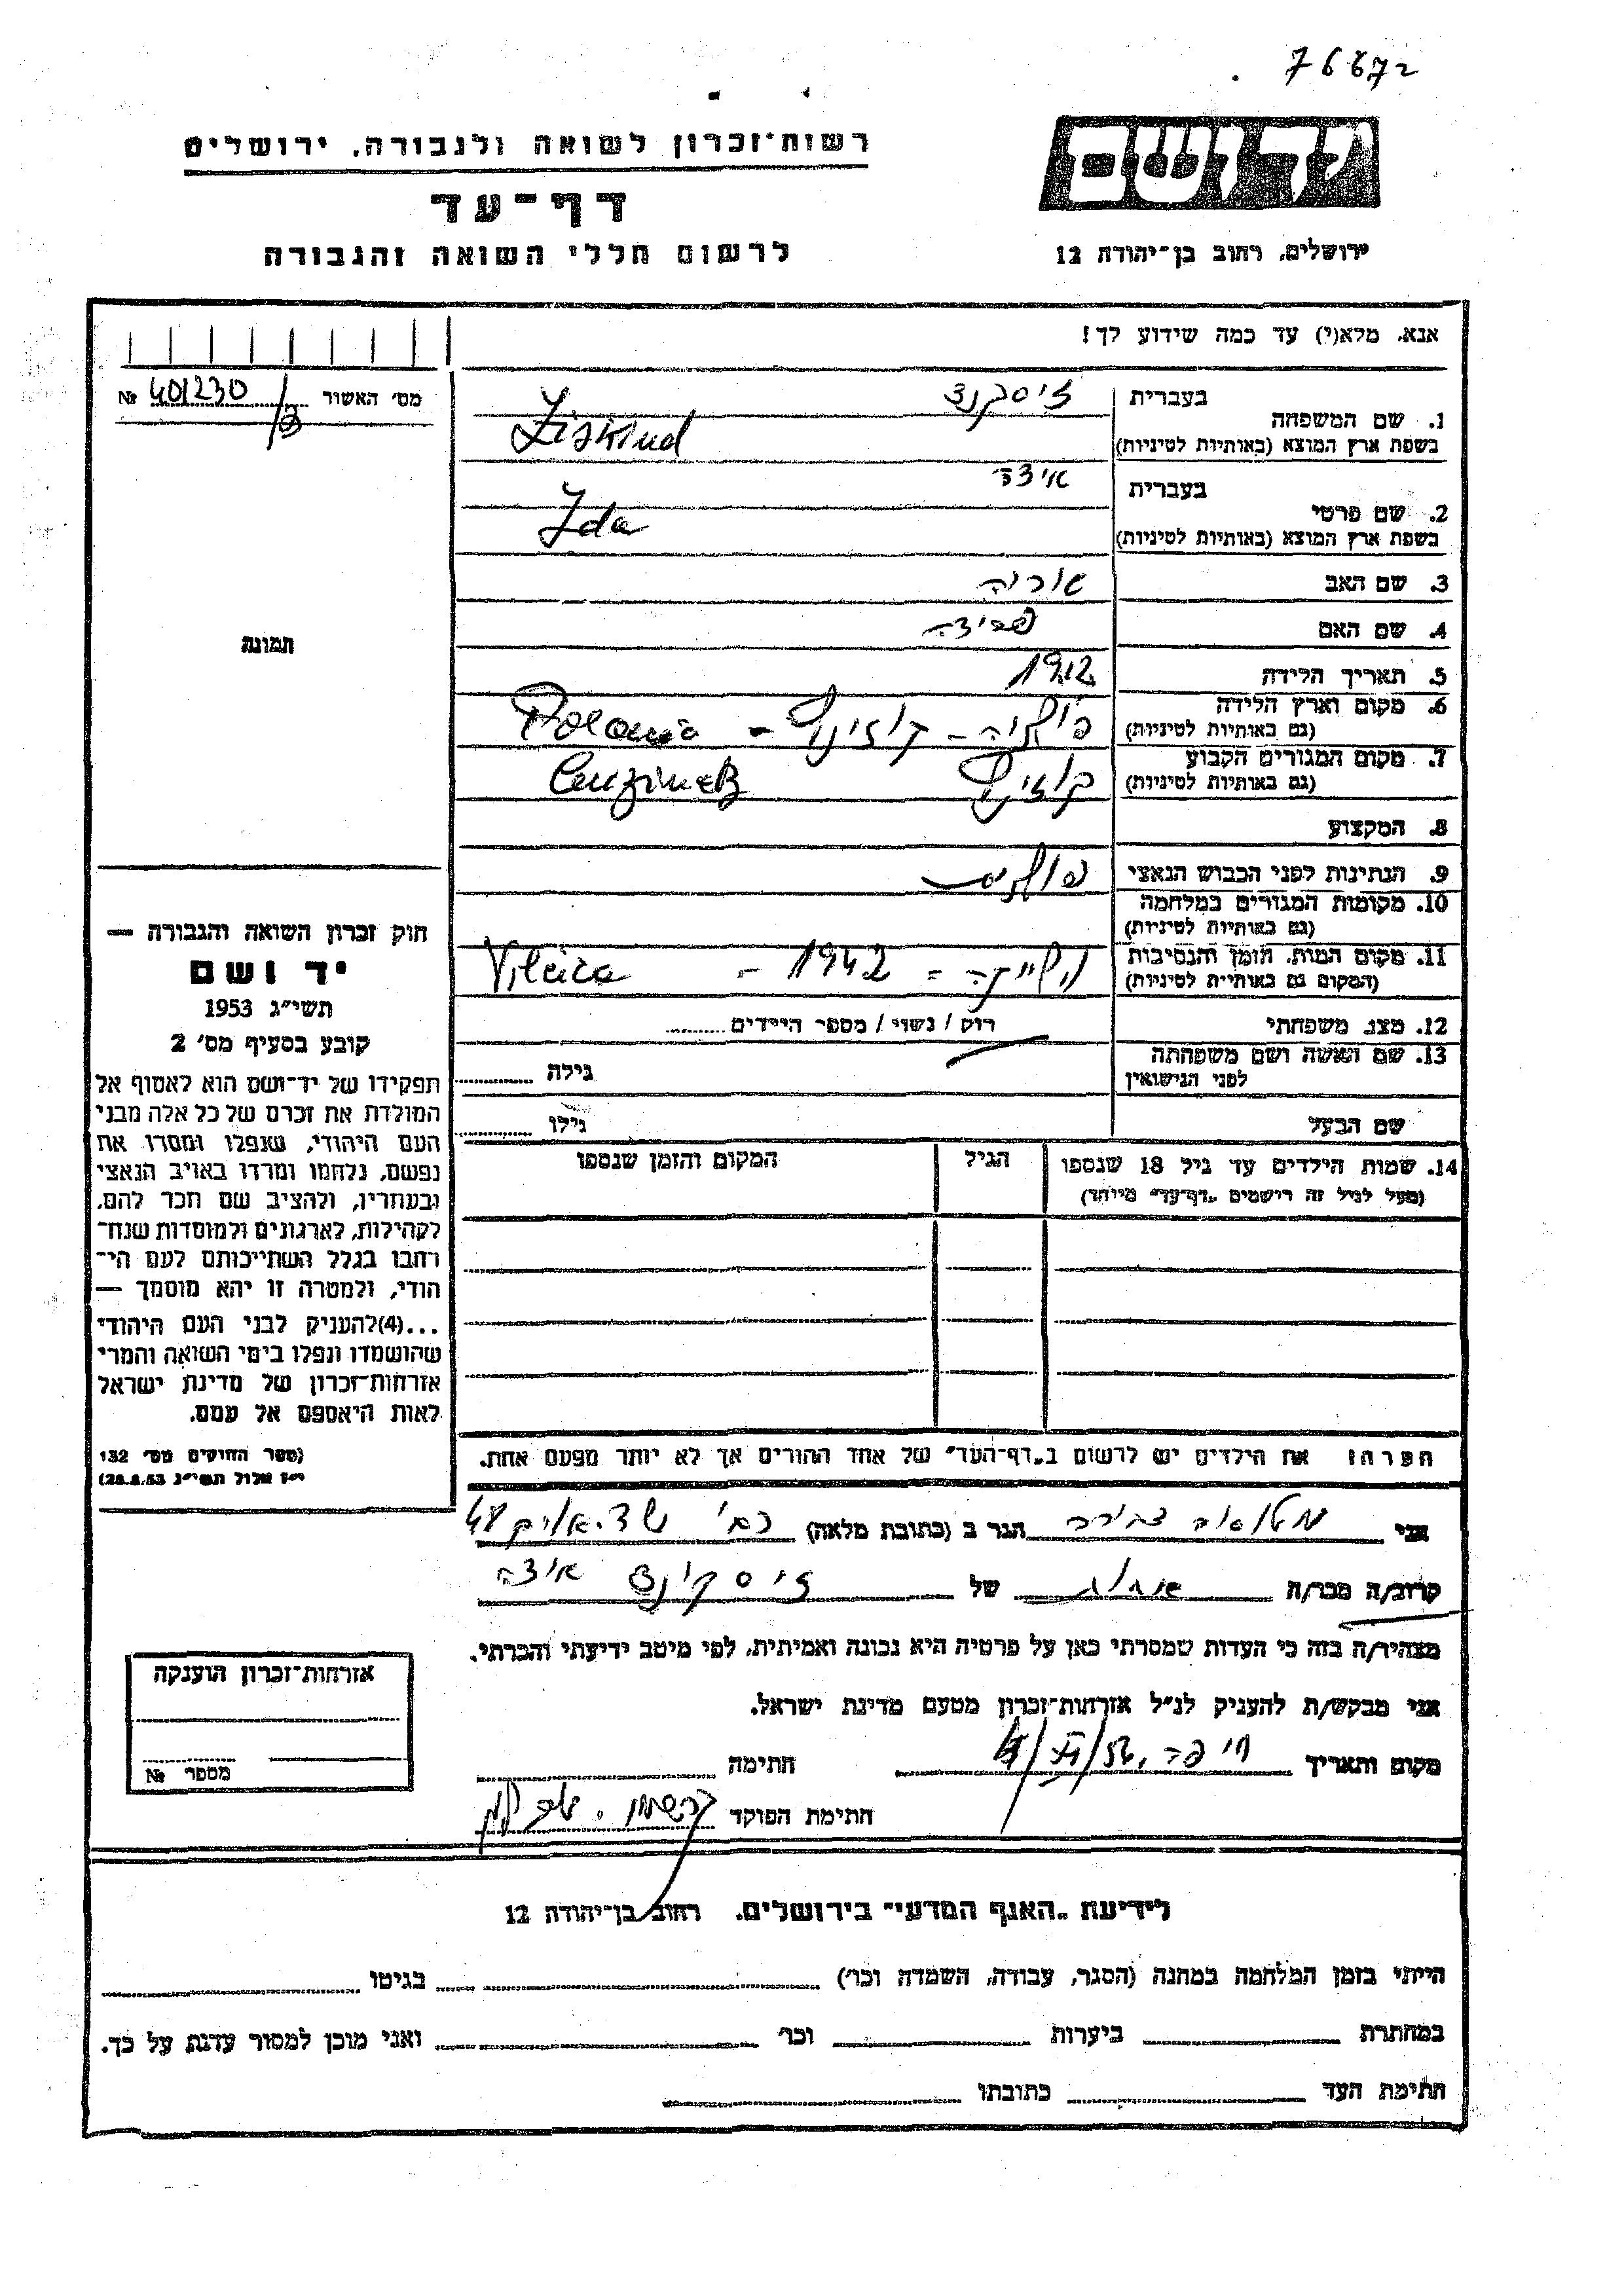 76672
רשות־זכרון לשואה ולגבורה, ירושלים
דף־עד
לרשום חללי השואה והגבורה
יד ושם
ירושלים, רחוב בן־יהודה 12
אנא, מלא(י) עד כמה שידוע לך!
מס׳ האשור № 401230
בעברית זיסקנד
1. שם המשפחה
בשפת ארץ המוצא (באותיות לטיניות) Ziskind
בעברית אידה
2. שם פרטי
בשפת ארץ המוצא (באותיות לטיניות) Ida
3. שם האב
4. שם האם
5. תאריך הלידה 1912
6. מקום וארץ הלידה
(גם באותיות לטיניות) Polonia -
7. מקום המגורים הקבוע
(גם באותיות לטיניות)
8. המקצוע
9. הנתינות לפני הכבוש הנאצי
10. מקומות המגורים במלחמה
(גם באותיות לטיניות)
11. מקום המות, הזמן והנסיבות
(המקום גם באותיות לטיניות) וילייקה - 1942 - Vileica
12. מצב משפחתי רוק / נשוי / מספר הילדים
13. שם האשה ושם משפחתה
לפני הנישואין גילה
שם הבעל גילו
14. שמות הילדים עד גיל 18 שנספו הגיל המקום והזמן שנספו
(מעל לגיל זה רישמים „דף־עד״ מיוחד)
הערה: את הילדים יש לרשום ב„דף־העד״ של אחד ההורים אך לא יותר מפעם אחת.
תמונה
חוק זכרון השואה והגבורה —
יד ושם
תשי״ג 1953
קובע בסעיף מס׳ 2
תפקידו של יד־ושם הוא לאסוף אל
המולדת את זכרם של כל אלה מבני
העם היהודי, שנפלו ומסרו את
נפשם, נלחמו ומרדו באויב הנאצי
ובעוזריו, ולהציב שם וזכר להם,
לקהילות, לארגונים ולמוסדות שנח־
רבו בגלל השתייכותם לעם הי־
הודי, ולמטרה זו יהא מוסמך —
...(4)להעניק לבני העם היהודי
שהושמדו ונפלו בימי השואה והמרי
אזרחות־זכרון של מדינת ישראל
לאות היאספם אל עמם.
(ספר החוקים מס׳ 132
י״ז אלול תשי״ג 28.8.53)
אני הגר ב (כתובת מלאה)
קרוב/ה מכר/ה של זיסקינד אידה
מצהיר/ה בזה כי העדות שמסרתי כאן על פרטיה היא נכונה ואמיתית, לפי מיטב ידיעתי והכרתי.
אני מבקש/ת להעניק לנ״ל אזרחות־זכרון מטעם מדינת ישראל.
מקום ותאריך חיפה, חתימה
חתימת הפוקד
אזרחות־זכרון הוענקה
מספר №
לידיעת „האגף המדעי״ בירושלים, רחוב בן־יהודה 12
הייתי בזמן המלחמה במחנה (הסגר, עבודה, השמדה וכו׳) בגיטו
במחתרת ביערות וכו׳ ואני מוכן למסור עדות על כך.
חתימת העד כתובתו